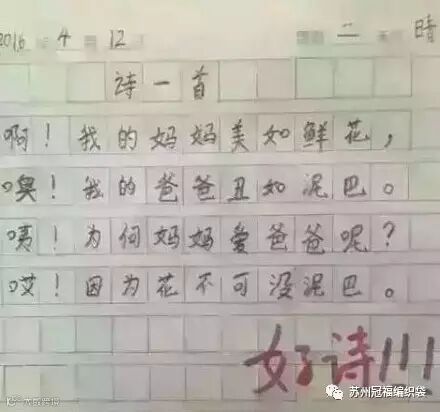 2016 年 4 月 12 日 星期 二 天气 晴
诗一首
啊！我的妈妈美如鲜花，
噢！我的爸爸丑如泥巴。
咦！为何妈妈爱爸爸呢？
哎！因为花不可没泥巴。
好诗!!!
苏州冠福编织袋